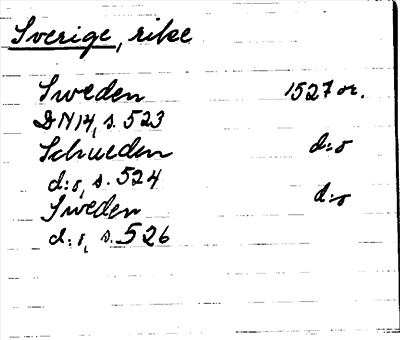 Sverige, rike
Sweden 1527 or.
DN 14, s. 523
Schweden d:o
d:o, s. 524
Sweden d:o
d:o, s. 526